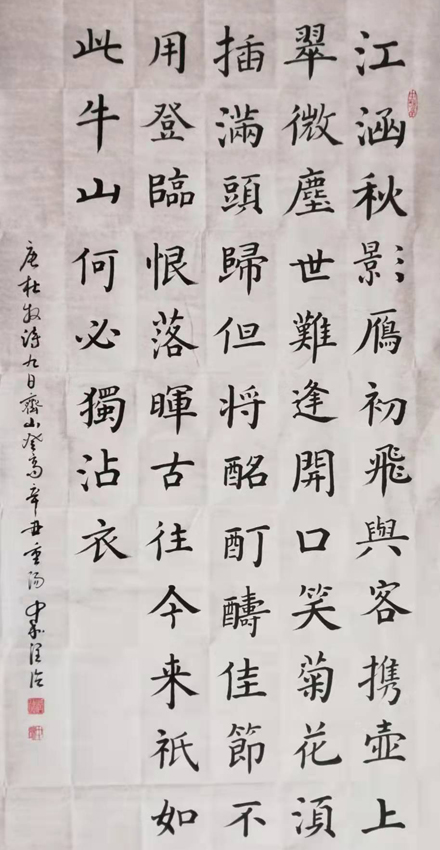 江涵秋影鴈初飛與客携壺上
翠微塵世難逢開口笑菊花湏
插滿頭歸但将酩酊醻佳節不
用登臨恨落暉古往今来祇如
此牛山何必獨沾衣
唐杜牧诗九日齊山登高辛丑重阳